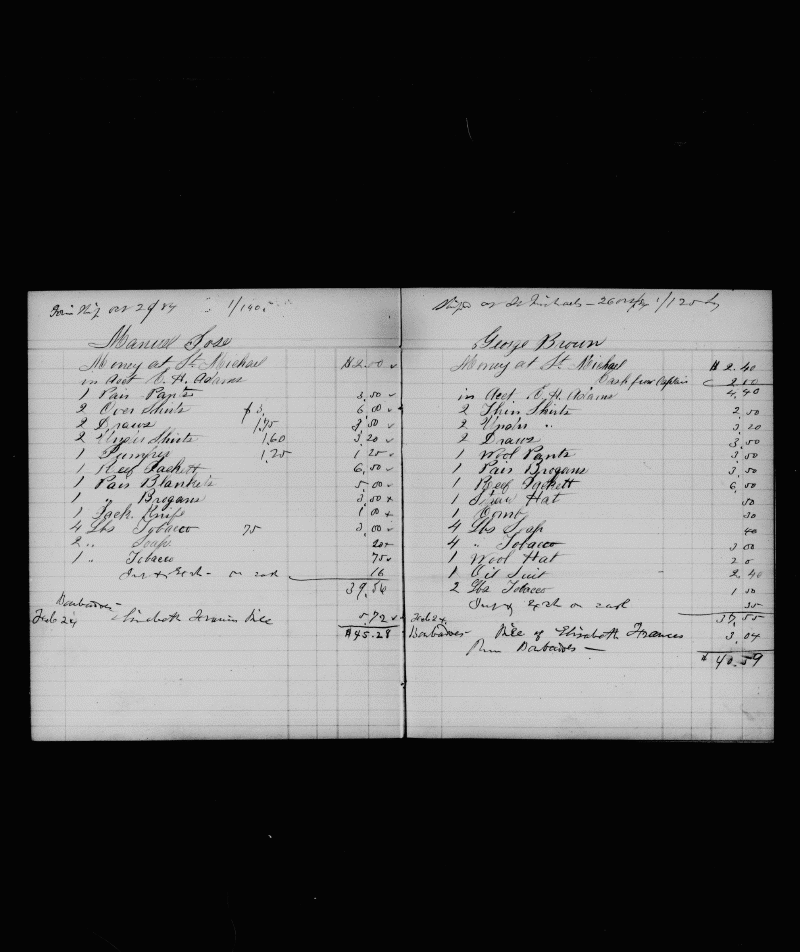 Join Ship Oct 29 84 1/140
Manuel Jose
Money at St. Michael $2.00
in Acct E. H. Adams
1 Pair Pants 3,50
2 Over Shirts $3, 6,00
2 Draws 1,75 3,50
2 Under Shirts 1,60 3,20
1 Jumper 1,25 1 25
1 Reef Jackett 6,50
1 Pair Blankets 5 00
1 " Brogans 3,50
1 Jack Knife 1 00
4 Lbs Tobacco 75 3,00
2 " Soap 20
1 " Tobacco 75
Ins & Exch on cash 16
39,56
Barbadoes
Feb 24 Elisabeth Francis Bill 5,72
$45.28
Shiped at St Michaels - 26 1/120 Lay
George Brown
Money at St. Michael $ 2.40
Cash from Captain 2 00
in Acct. E. H. Adams 4,40
2 Thin Shirts 2,50
2 Under " 3,20
2 Draws 3,50
1 Wool Pants 3,50
1 Pair Brogans 3,50
1 Reef Jackett 6,50
1 Straw Hat 50
1 Comb 30
4 Lbs Soap 40
4 " Tobacco 3 00
1 Wool Hat
1 Oil Suit 2,40
2 Lbs Tobacco 1 50
Ins & Exch on cash 35
37,55
Feb 24
Barbadoes Bill of Elisabeth Frances 3,04
Barbadoes -
$ 40.59